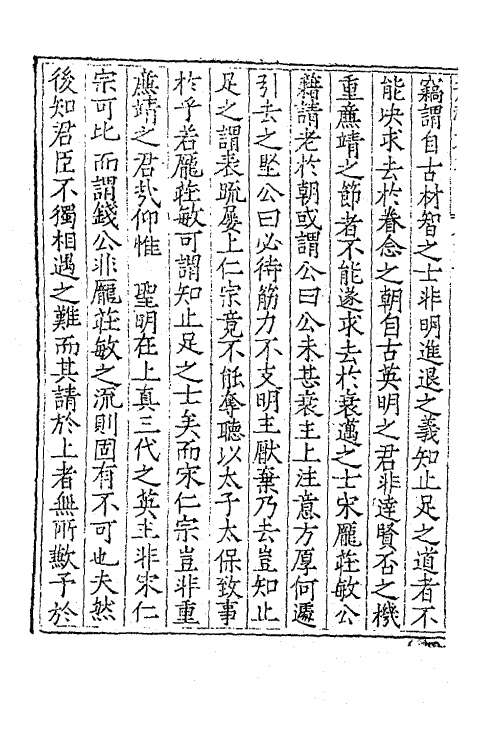 竊謂自古材智之士非明進退之義知止足之道者不
能决求去於眷念之朝自古英明之君非達賢否之機
重廉靖之節者不能遂求去於衰邁之士宋龎莊敏公
藉請老於朝或謂公曰公未甚衰主上注意方厚何遽
引去之堅公曰必待筋力不支明主厭棄乃去豈知止
足之謂表疏屢上仁宗竟不能奪聽以太子太保致事
於乎若龎莊敏可謂知止足之士矣而宋仁宗豈非重
廉靖之君㦲仰惟　聖明在上真三代之英主非宋仁
宗可比而謂錢公非龎莊敏之流則固有不可也夫然
後知君臣不獨相遇之難而其請於上者無所歉予於